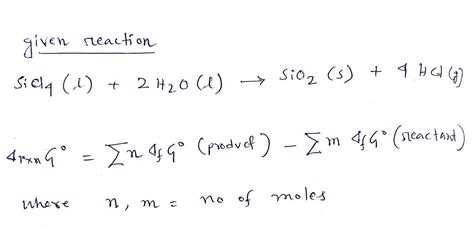 given reaction
SiCl4 (l) + 2 H2O (l) → SiO2 (s) + 4 HCl (g)
ΔrxnG° = ∑n ΔfG° (product) − ∑m ΔfG° (reactant)
where n, m = no of moles